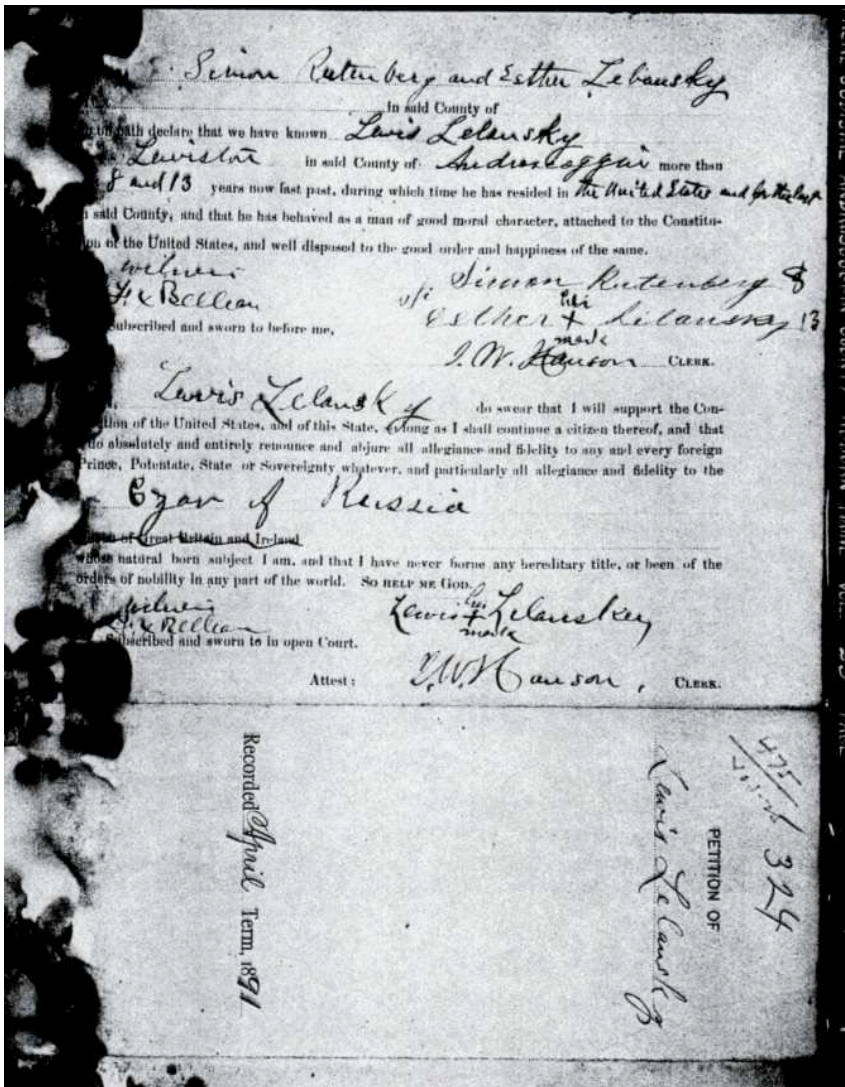 Simon Rutenberg and Esther Lebansky
in said County of
on oath declare that we have known Lewis Lelansky
Lewiston in said County of Androscoggin more than
8 and 13 years now last past, during which time he has resided in the United States and for the last
said County, and that he has behaved as a man of good moral character, attached to the Constitu-
tion of the United States, and well disposed to the good order and happiness of the same.
witness
F. X. Belleau
Simon Rutenberg 8
Esther her + mark Lelansky 13
Subscribed and sworn to before me,
I. W. Hanson CLERK.
Lewis Lelansky do swear that I will support the Con-
tion of the United States, and of this State, so long as I shall continue a citizen thereof, and that
do absolutely and entirely renounce and abjure all allegiance and fidelity to any and every foreign
Prince, Potentate, State or Sovereignty whatever, and particularly all allegiance and fidelity to the
Czar of Russia
of Great Britain and Ireland
whose natural born subject I am, and that I have never borne any hereditary title, or been of the
orders of nobility in any part of the world. SO HELP ME GOD.
witness
F. X. Belleau
Lewis his + mark Lelanskey
Subscribed and sworn to in open Court.
Attest: I. W. Hanson, CLERK.
324
PETITION OF
Lewis Lelansky
Recorded April Term, 1891